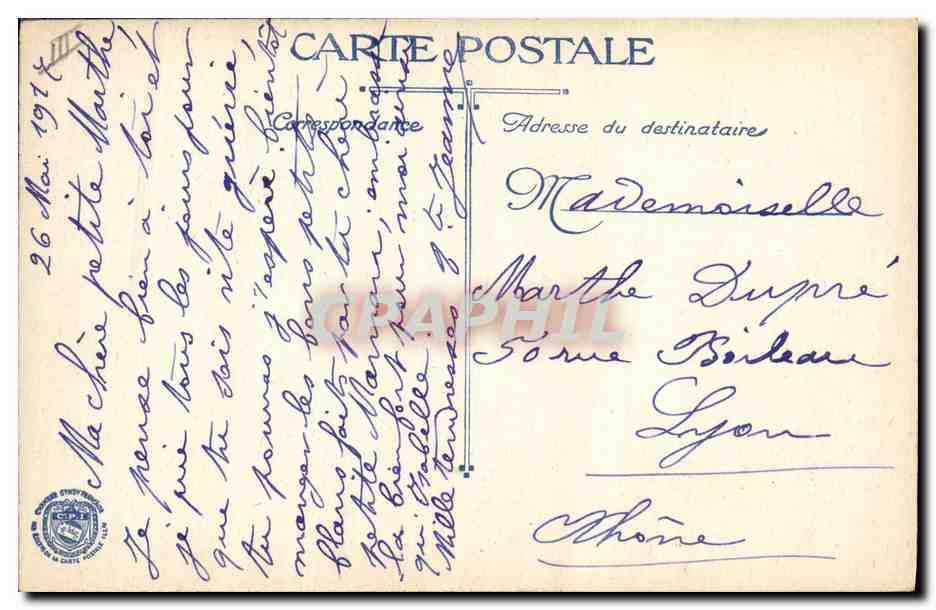 CARTE POSTALE
Correspondance
Adresse du destinataire
III
26 Mai 1917
Ma chère petite Marthe,
Je pense bien à toi et
je prie tous les jours pour
que tu sois vite guérie,
tu pourras j'espère bientôt
manger les bons petits
flans faits par ta chère
petite Maman, embrasse
la bien fort pour moi ainsi
qu'Isabelle.
Mille tendresses de ta Jeanne
Mademoiselle
Marthe Dupré
50 rue Boileau
Lyon
Rhône
CPAPHIL